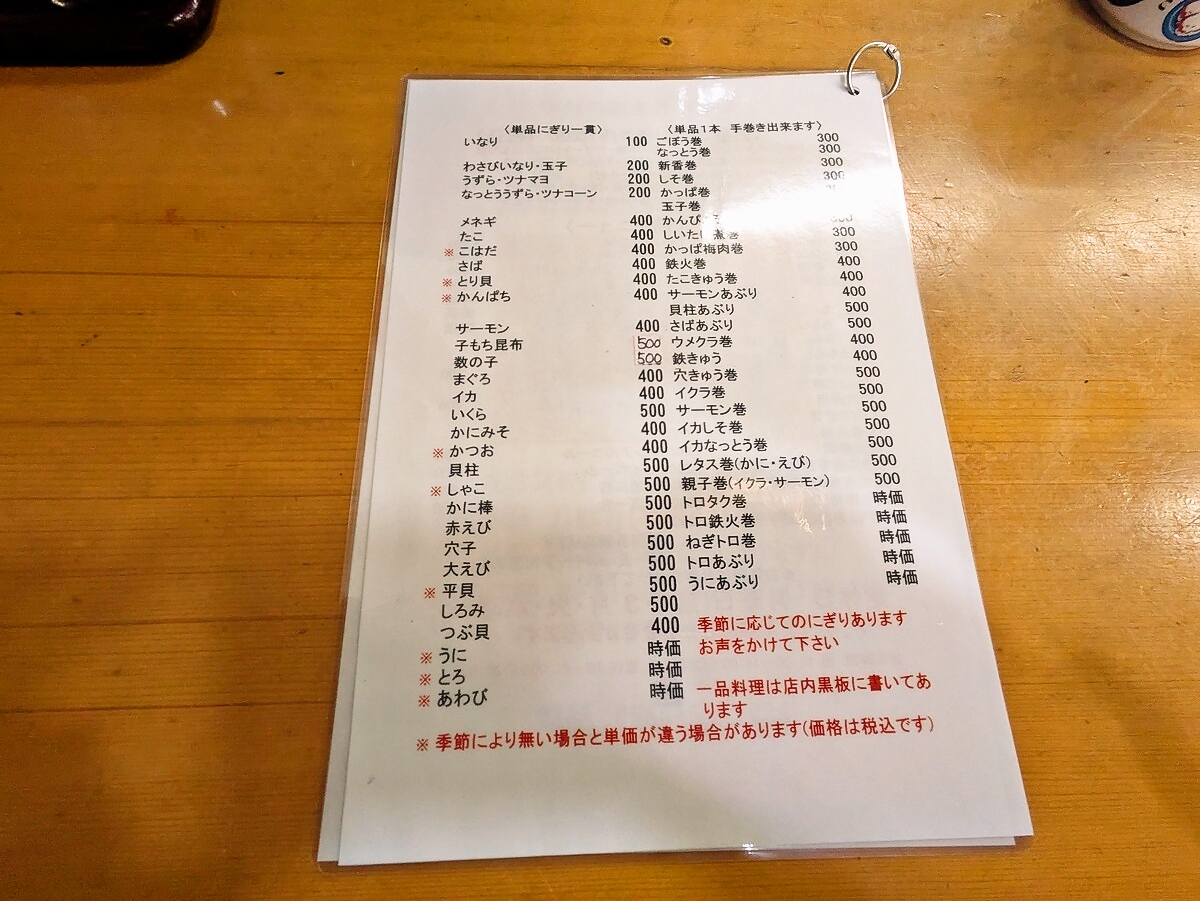 〈単品にぎり一貫〉
いなり 100
わさびいなり・玉子 200
うずら・ツナマヨ 200
なっとううずら・ツナコーン 200
メネギ 400
たこ 400
※ こはだ 400
さば 400
※ とり貝 400
※ かんぱち 400
サーモン 400
子もち昆布 500
数の子 500
まぐろ 400
イカ 400
いくら 500
かにみそ 400
※ かつお 400
貝柱 500
※ しゃこ 500
かに棒 500
赤えび 500
穴子 500
大えび 500
※ 平貝 500
しろみ 500
つぶ貝 400
※ うに 時価
※ とろ 時価
※ あわび 時価
〈単品1本 手巻き出来ます〉
ごぼう巻 300
なっとう巻 300
新香巻 300
しそ巻 300
かっぱ巻
玉子巻
しいたけ煮巻 300
かっぱ梅肉巻 300
鉄火巻 400
たこきゅう巻 400
サーモンあぶり 400
貝柱あぶり 500
さばあぶり 500
ウメクラ巻 400
鉄きゅう 400
穴きゅう巻 500
イクラ巻 500
サーモン巻 500
イカしそ巻 500
イカなっとう巻 500
レタス巻(かに・えび) 500
親子巻(イクラ・サーモン) 500
トロタク巻 時価
トロ鉄火巻 時価
ねぎトロ巻 時価
トロあぶり 時価
うにあぶり 時価
季節に応じてのにぎりあります
お声をかけて下さい
一品料理は店内黒板に書いてあ
ります
※ 季節により無い場合と単価が違う場合があります(価格は税込です)